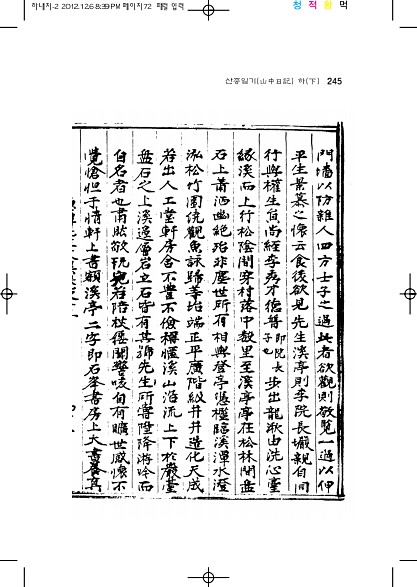 하내지-2 2012.12.6 8:39 PM 페이지72 패럴 입력
청 적 황 먹
산중일기(山中日記) 하(下) 245
門墻以防雜人四方士子之過此者欲觀則敬覽一過以伸
平生景慕之懷云食後欲見先生溪亭則李院長 親自同
行與權生 尙經李 才德 步出龍湫由洗心臺
緣溪而上行松陰間穿村落中數里至溪亭亭在松林間盤
石上蕭洒幽絶殆非塵世所有相與登亭憑檻臨溪潭水澄
泓松竹圍繞觀魚詠歸等坮端正平廣階級井井造化天成
若出人工堂軒房舍不豊不儉穩愜溪山沿流上下於巖臺
盤石之上溪邊層岩立石皆有其號先生所嘗陞降游吟而
自名者也肅然欽 若陪杖 聞謦咳自有曠世感懷不
覺愴怛于情軒上書 溪亭二字卽石峯書房上大書